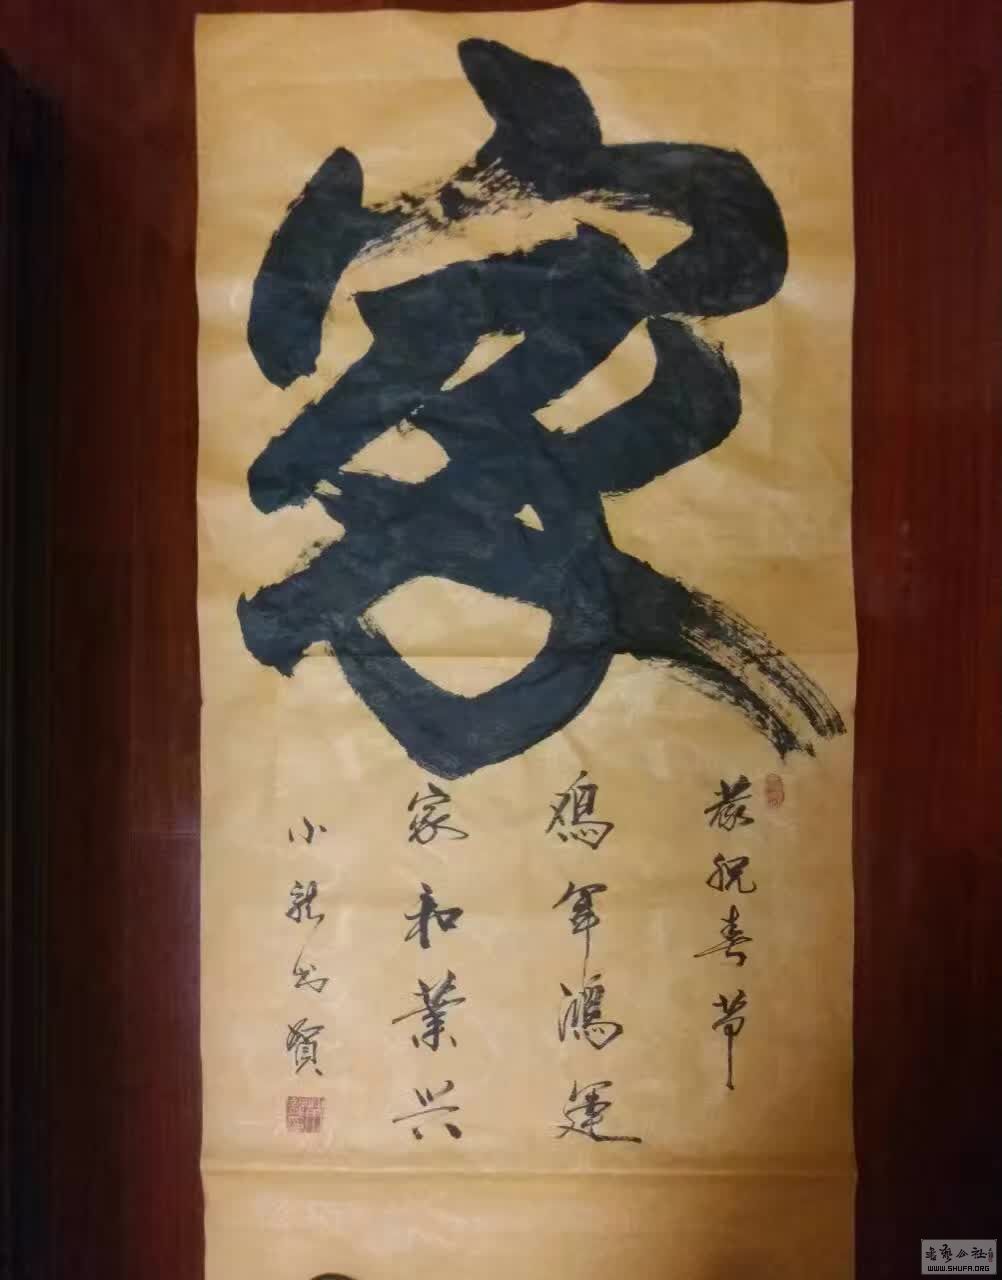 家
恭祝春节
鸡年鸿運
家和業兴
小龙书贺
书艺公社
WWW.SHUFA.ORG